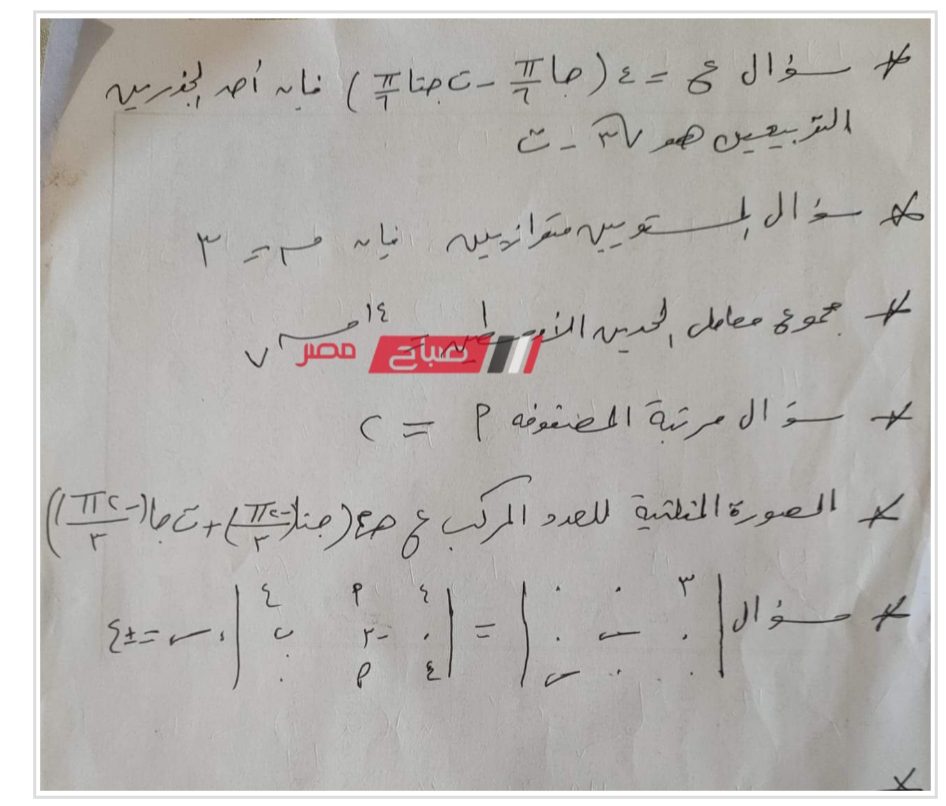 * سؤال ع = ٤ (جا π/٦ - ت جتا π/٦) فإن أحد الجذرين
التربيعين هو √٣ - ت
* سؤال المستويين متوازيين فإن م = ٣
* مجموع معامل الحدين الأوسطين =
١٤
٧
صباح مصر
* سؤال مرتبة المصفوفة P = ٢
* الصورة المثلثية للعدد المركب ع هى ٤ (جتا(-٢π/٣) + ت جا(-٢π/٣))
* سؤال | ٣ ٠ ٠ | = | ٤ P ٤ | ، س = ±٤
| ٠ س ٠ | | ٠ -٢ ب |
| ٠ ٠ س | | ٤ P ٠ |
*